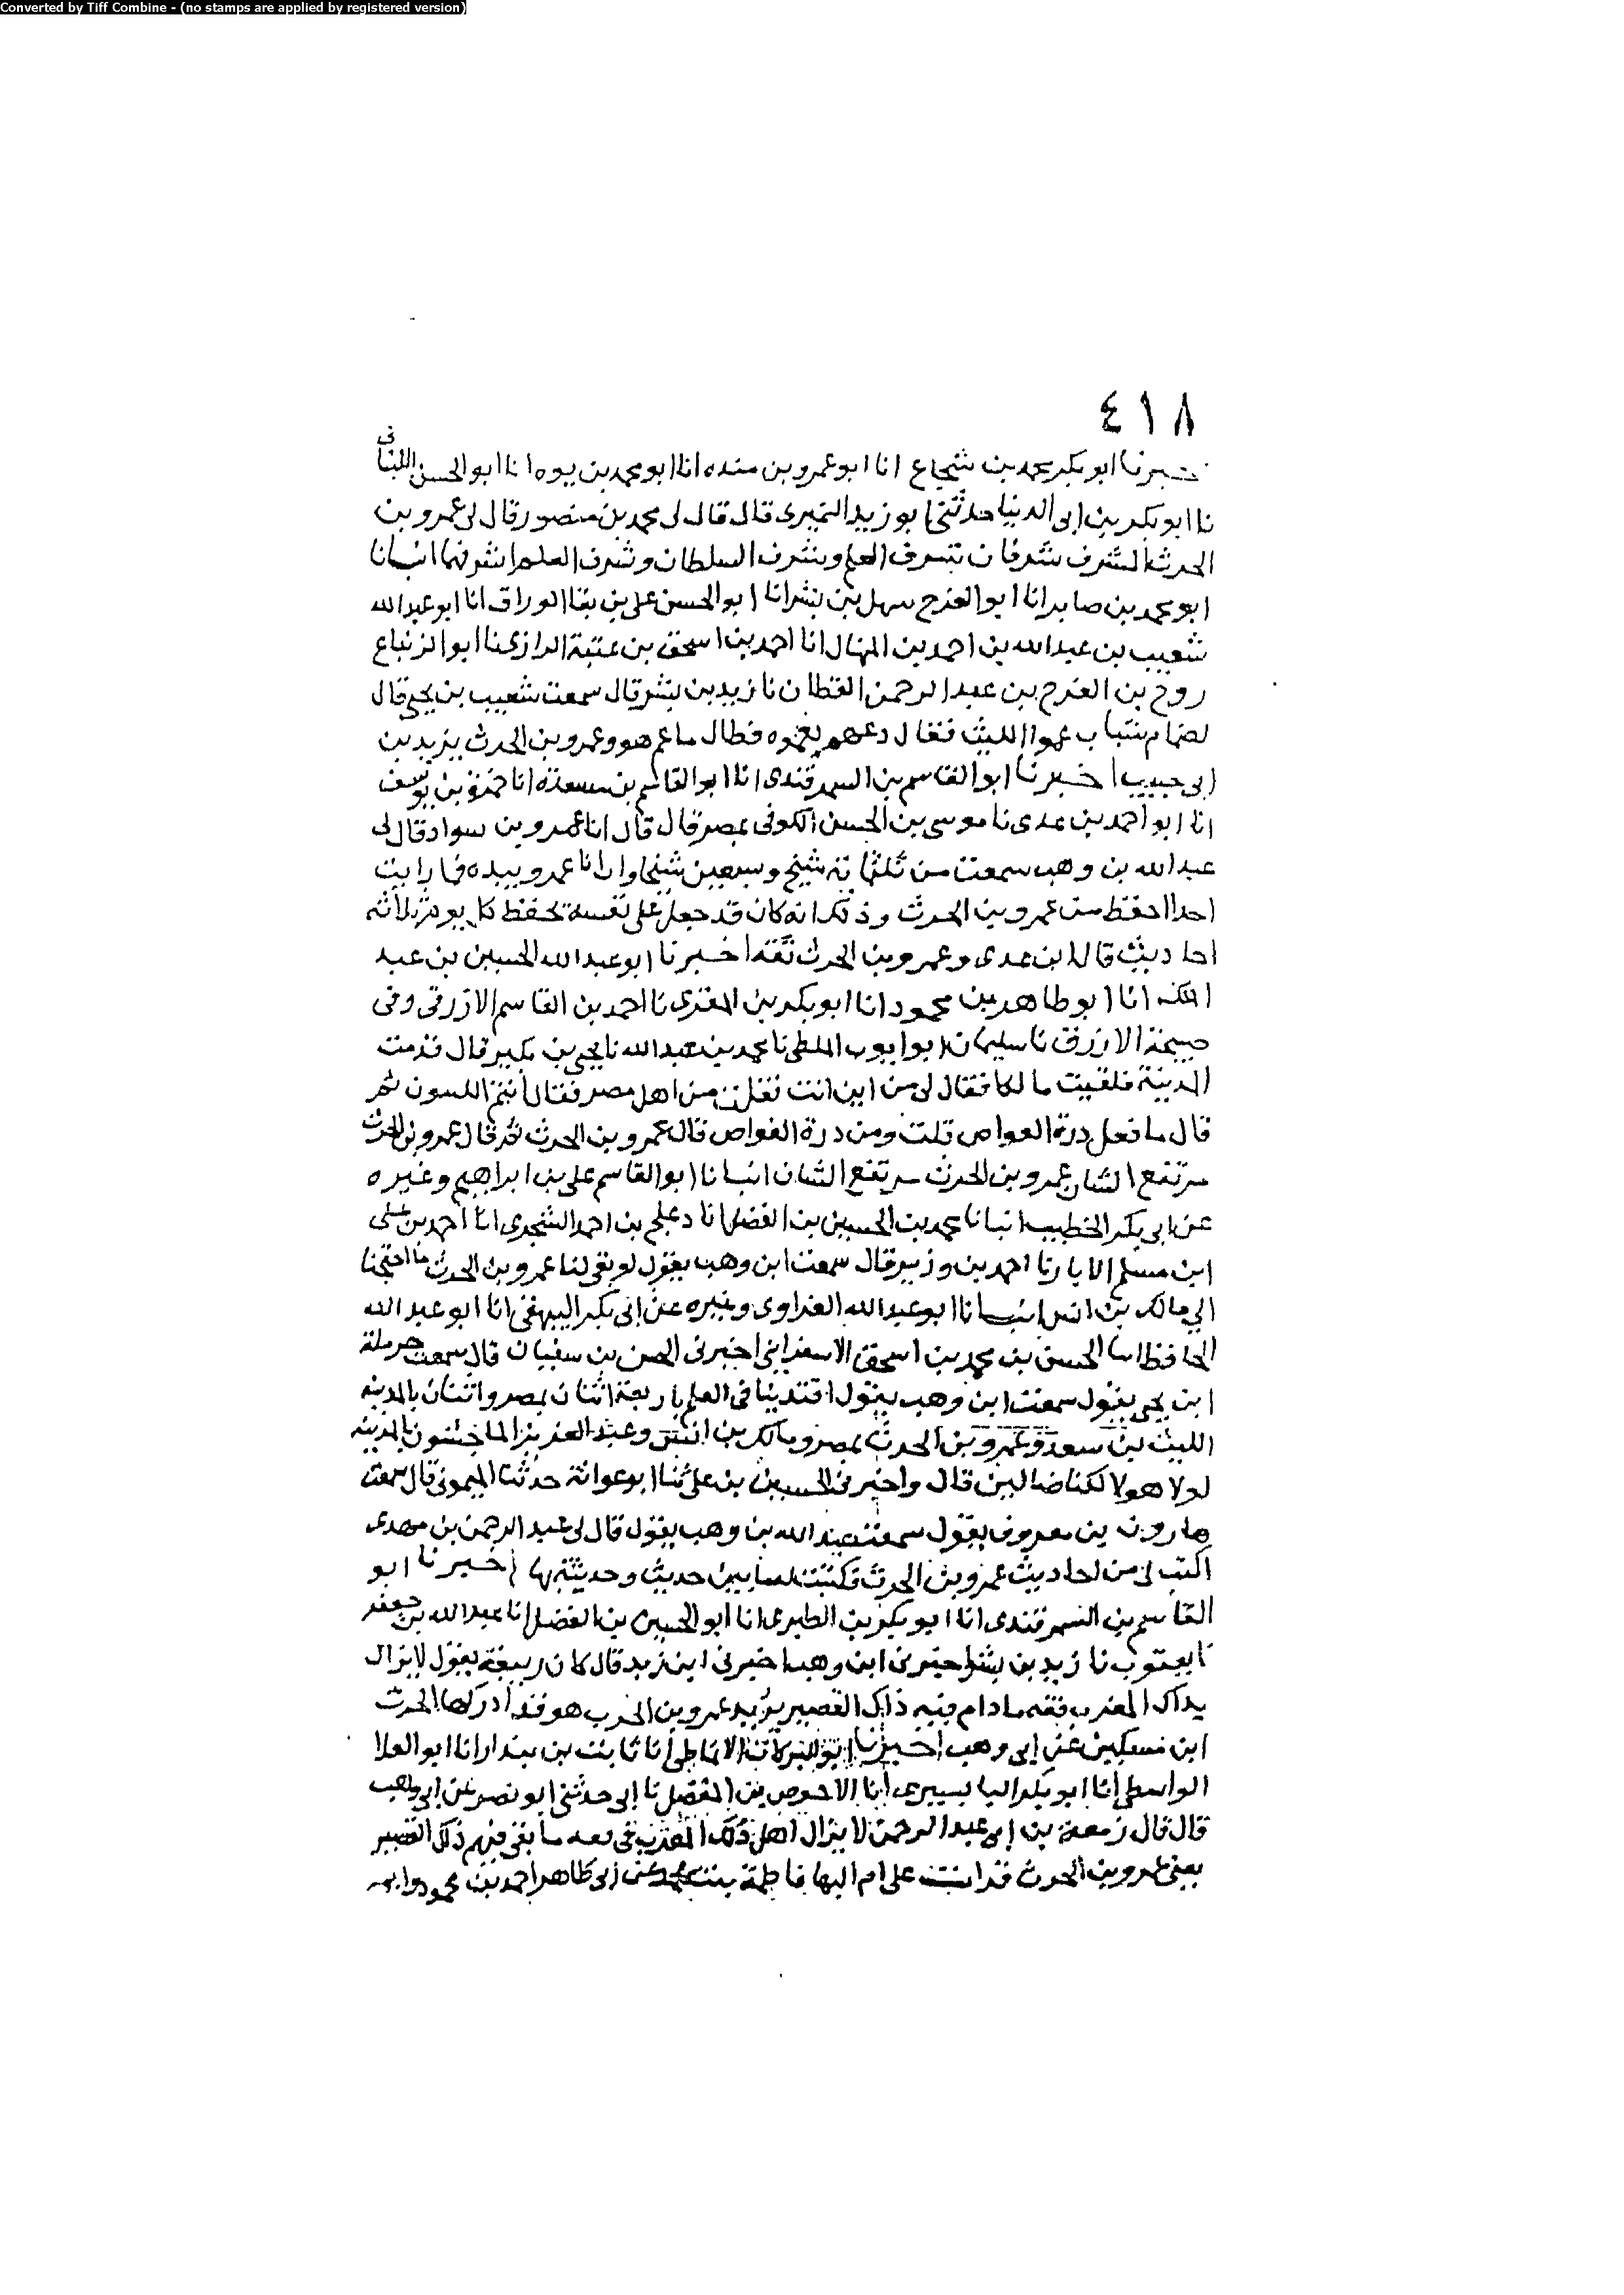 Converted by Tiff Combine - (no stamps are applied by registered version)
٤١٨
خبرنا ابو بكر محمد بن شجاع انا ابو عمرو بن منده انا ابو محمد بن يوه انا ابو الحسن اللنبانى
نا ابو بكر بن ابى الدنيا حدثنى ابو زيد النميرى قال قال لى محمد بن منصور قال لى عمرو بن
الحرث الشرف شرفان شرف العلم وشرف السلطان وشرف العلم اشرفهما انبانا
ابو محمد بن صابر انا ابو الفرج سهل بن بشر انا ابو الحسن على بن بقا الوراق انا ابو عبد الله
شعيب بن عبد الله بن احمد بن المنهال انا احمد بن اسحق بن عتبة الرازى نا ابو الزنباع
روح بن الفرج بن عبد الرحمن القطان نا زيد بن بشر قال سمعت شعيب بن يحيى قال
لضمام الليث فقال دعهم ما عم هو وعمرو بن الحرث يزيد بن
ابى حبيب اخبرنا ابو القاسم بن السمرقندى انا ابو القاسم بن مسعدة انا حمزة بن يوسف
انا ابو احمد بن عدى نا موسى بن الحسن الكوفى بمصر قال قال انا عمرو بن سواد قال لى
عبد الله بن وهب سمعت من ثلثمائة شيخ وسبعين شيخا فما رايت
احدا احفظ من عمرو بن الحرث وذلك انه كان قد جعل على نفسه يحفظ كل يوم ثلاثة
احاديث قال ابن عدى وعمرو بن الحرث ثقة اخبرنا ابو عبد الله الحسين بن عبد
الملك انا ابو طاهر بن محمود انا ابو بكر بن المقرى نا احمد بن القاسم الازرقى وفى
نسخة الازرق نا سليمان ابو ايوب الملطى نا محمد بن عبد الله نا يحيى بن بكير قال قدمت
المدينة فلقيت مالكا فقال لى من اين انت فقلت من اهل مصر فقال انتم اللسون ثم
قال ما فعل درة الغواص قلت ومن درة الغواص قال عمرو بن الحرث ثم قال عمرو بن الحرث
مرتفع الشان عمرو بن الحرث مرتفع الشان انبانا ابو القاسم على بن ابراهيم وغيره
عن ابى بكر الخطيب انبانا محمد بن الحسين بن الفضل انا دعلج بن احمد السجزى انا احمد بن على
ابن مسلم الابار نا احمد بن وزير قال سمعت ابن وهب يقول لو بقى لنا عمرو بن الحرث ما احتجنا
الى مالك بن انس انبانا ابو عبد الله الفراوى وغيره عن ابى بكر البيهقى انا ابو عبد الله
الحافظ انا الحسن بن محمد بن اسحق الاسفراينى اخبرنى الحسن بن سفيان قال سمعت حرملة
ابن يحيى يقول سمعت ابن وهب يقول اقتدينا فى العلم باربعة اثنان بمصر واثنان بالمدينه
الليث بن سعد وعمرو بن الحرث بمصر ومالك بن انس وعبد العزيز الماجشون بالمدينه
لولا هولا لكنا ضالين قال واخبرنى الحسين بن على ثنا ابو عوانة حدثنا الميمونى قال سمعت
هارون بن معروف يقول سمعت عبد الله بن وهب يقول قال لى عبد الرحمن بن مهدى
اكتب لى من احاديث عمرو بن الحرث فكتبت له مايتى حديث وحدثته بها اخبرنا ابو
القاسم بن السمرقندى انا ابو بكر بن الطبرى انا ابو الحسين بن الفضل انا عبد الله بن جعفر
نا يعقوب نا زيد بن بشر اخبرنى ابن وهب اخبرنى ابن زيد قال كان ربيعة يقول لا يزال
بذاك المغرب فقه ما دام فيه ذاك القصير يريد عمرو بن الحرث هو فقد ادركها الحرث
ابن مسكين عن ابى وهب اخبرنا ابو البركات الانماطى انا ثابت بن بندار انا ابو العلا
الواسطى انا ابو بكر البابسيرى انا الاحوص بن المفضل نا ابى حدثنى ابو نصر عن ابى وهب
قال قال ربيعة بن ابى عبد الرحمن لا يزال اهل ذلك المغرب فى فقه ما بقى فيهم ذلك القصير
يعنى عمرو بن الحرث قرات على ام البها فاطمة بنت محمد عن ابى طاهر احمد بن محمود